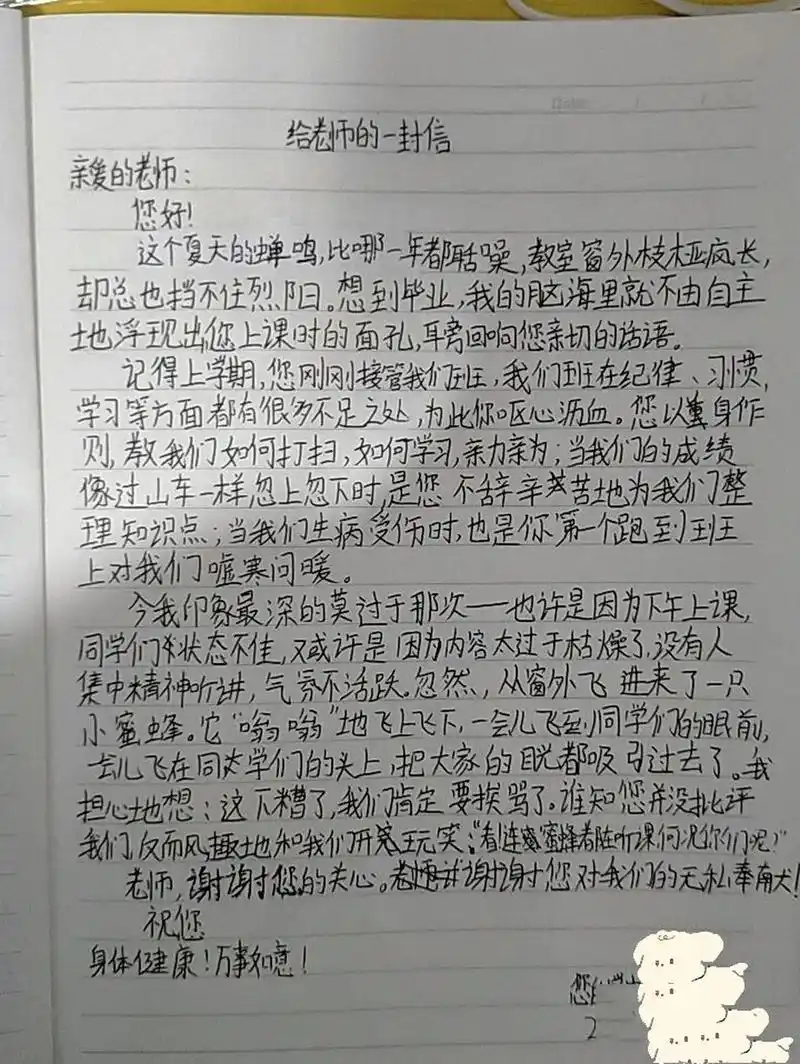 给老师的一封信
亲爱的老师：
您好！
这个夏天的蝉鸣，比哪一年都聒噪，教室窗外枝桠疯长，
却总也挡不住烈阳。想到毕业，我的脑海里就不由自主
地浮现出您上课时的面孔，耳旁回响您亲切的话语。
记得上学期，您刚刚接管我们班，我们班在纪律、习惯，
学习等方面都有很多不足之处，为此你呕心沥血。您以身作
则，教我们如何打扫，如何学习，亲力亲为；当我们的成绩
像过山车一样忽上忽下时，是您不辞辛苦地为我们整
理知识点；当我们生病受伤时，也是你第一个跑到班
上对我们嘘寒问暖。
令我印象最深的莫过于那次——也许是因为下午上课，
同学们状态不佳，又或许是因为内容太过于枯燥了，没有人
集中精神听讲，气氛不活跃。忽然，从窗外飞进来了一只
小蜜蜂。它“嗡嗡”地飞上飞下，一会儿飞到同学们的眼前，
一会儿飞在同学们的头上，把大家的目光都吸引过去了。我
担心地想：这下糟了，我们肯定要挨骂了。谁知您并没批评
我们，反而风趣地和我们开玩笑：“看！连蜜蜂都在听课，何况你们呢！”
老师，谢谢您的关心。谢谢您对我们的无私奉献！
祝您
身体健康！万事如意！
您
2